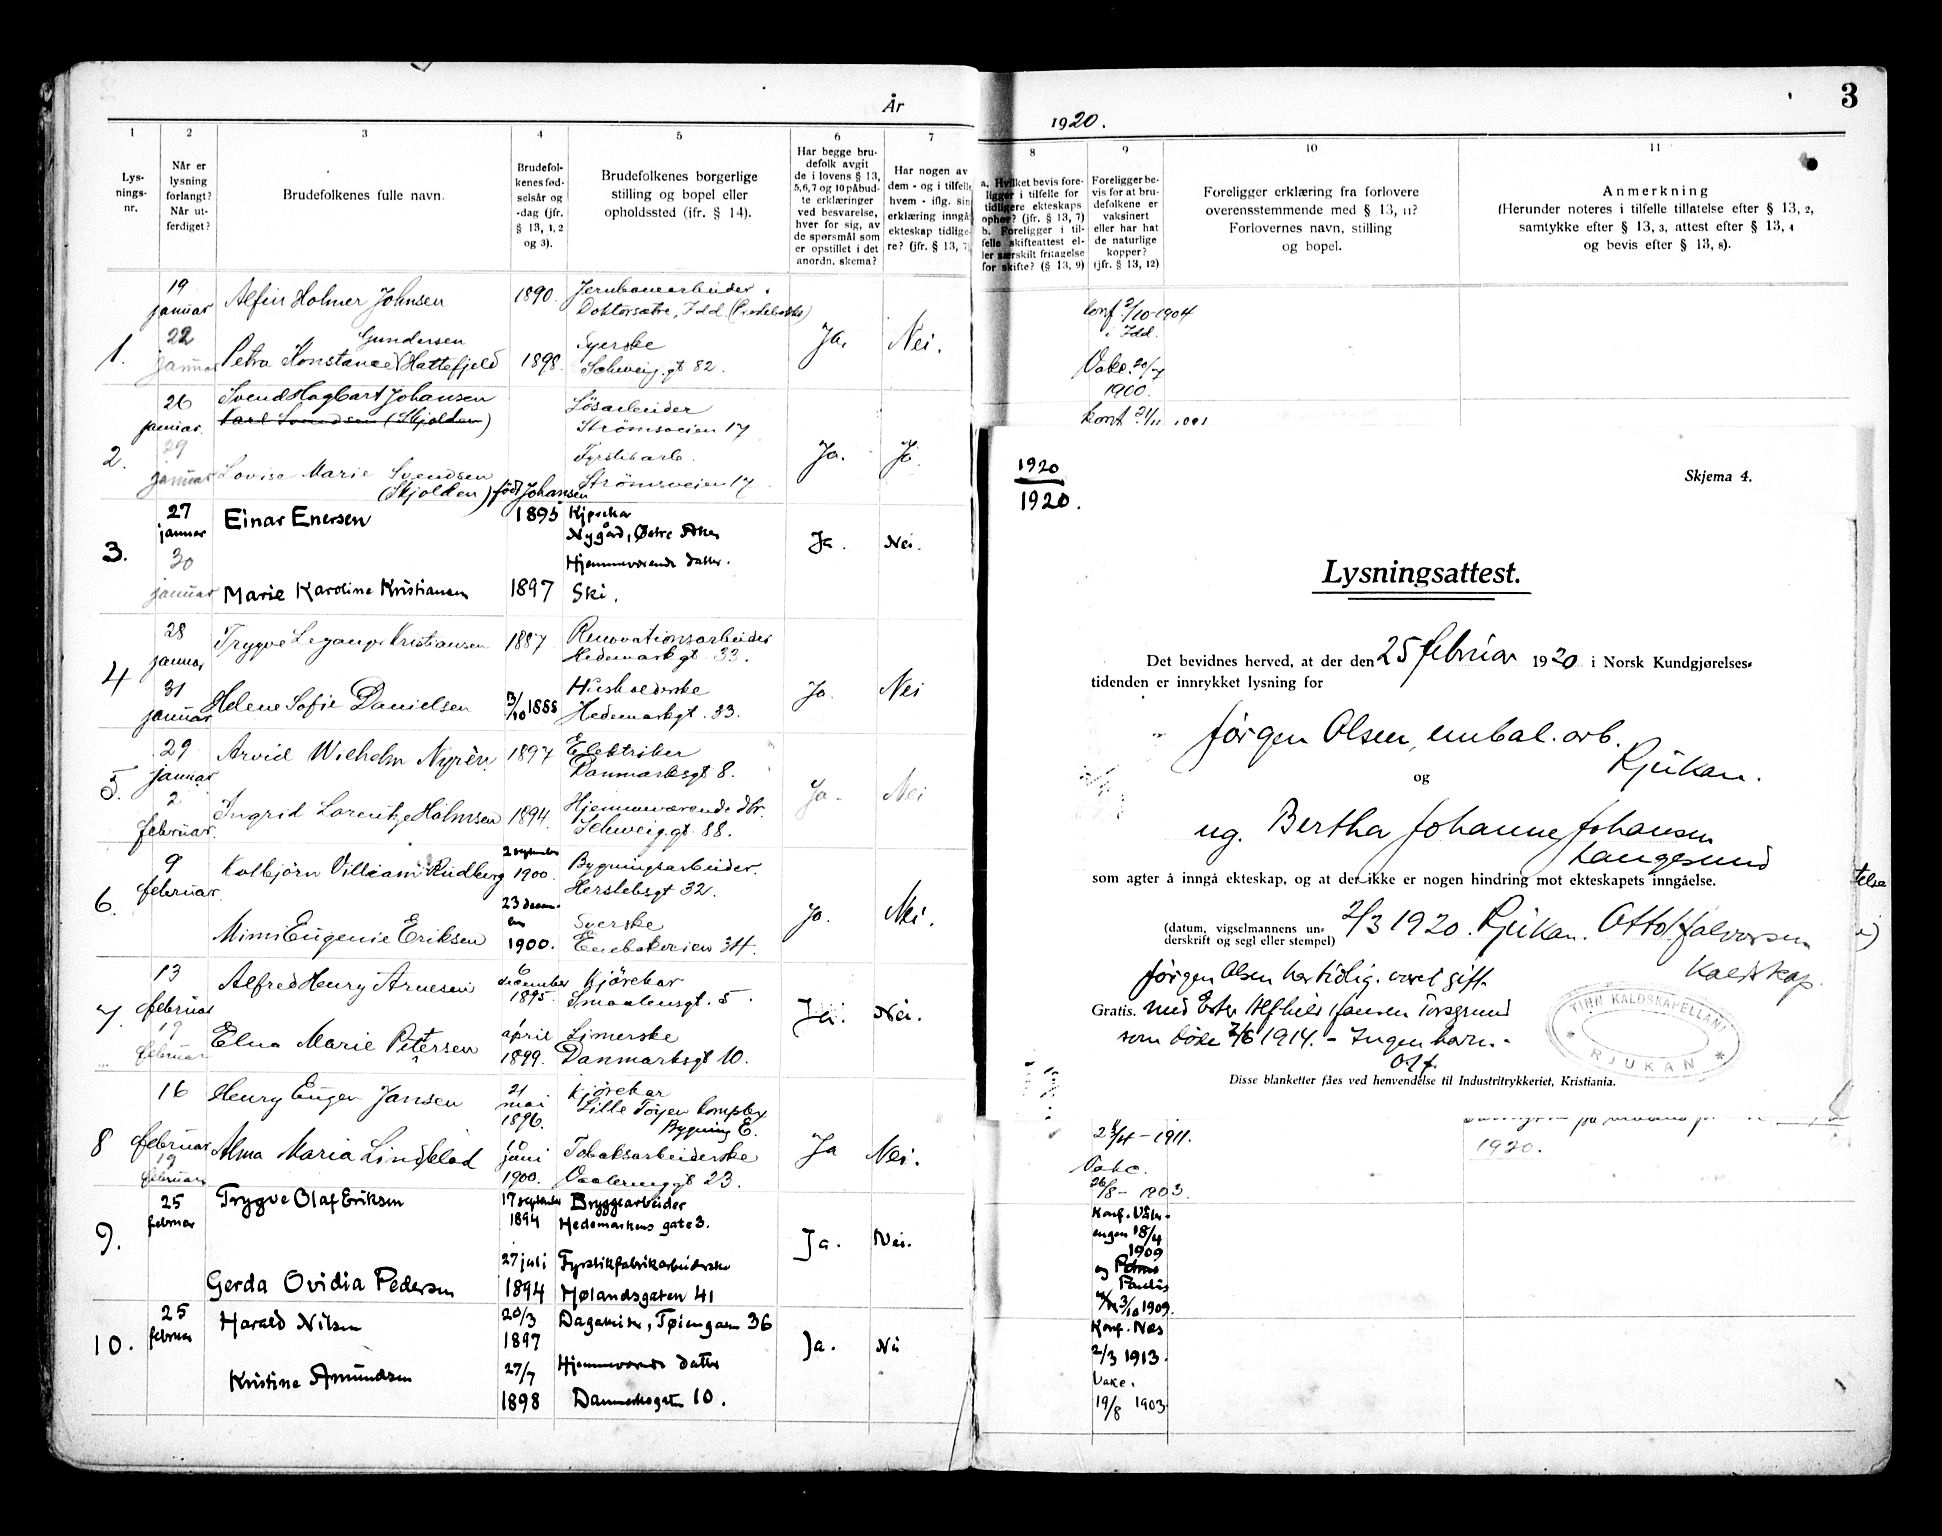 3
År
1920.
1
2
3
4
5
6
7
8
9
10
11
Lys-
nings-
nr.
Når er
lysning
forlangt?
Når ut-
ferdiget?
Brudefolkenes fulle navn.
Brudefol-
kenes fød-
selsår og
-dag (jfr.
§ 13, 1, 2
og 3).
Brudefolkenes borgerlige
stilling og bopel eller
opholdssted (ifr. § 14).
Har begge bru-
defolk avgit
de i lovens § 13,
5, 6, 7 og 10 påbud-
te erklæringer
ved besvarelse,
hver for sig, av
de spørsmål som
er opstillet i det
anordn. skema?
Har nogen av
dem - og i tilfelle
hvem - iflg. sin
erklæring inngå
ekteskap tidlige-
re? (jfr. § 13, 7)
a. Hvilket bevis fore-
ligger i tilfelle for
tidligere ekteskaps
ophør? (jfr. § 13, 7)
b. Foreligger i til-
felle skifteattest el-
ler særskilt fritagelse
for skifte? (§ 13, 9)
Foreligger be-
vis for at bru-
defolkene er
vaksinert
eller har hat
de naturlige
kopper?
(jfr. § 13, 12)
Foreligger erklæring fra forlovere
overensstemmende med § 13, 11?
Forlovernes navn, stilling
og bopel.
Anmerkning
(Herunder noteres i tilfelle tillatelse efter § 13, 2,
samtykke efter § 13, 3, attest efter § 13, 4
og bevis efter § 13, 8).
1.
19
januar
22
januar
Alfin Holmer Johnsen
1890.
Jernbanearbeider.
Doktorsætre, Idd.
Gundersen
Petra Konstance (Hattefjeld
1898.
Syerske
Schweig.gt 82.
Ja.
Nei.
Konf. 2/10-1904
i Idd.
Vakc.
1900.
2.
26
januar.
29
januar
Svend Hagbart Johansen
Karl Svendsen (Skjolden)
Løsarbeider
Strömsveien 17
Lovise Marie Svendsen
(Skjolden) født Johansen
Fyrstikarb.
Strömsveien 17
Ja.
Ja
3.
27
januar
30
januar
Einar Enersen
1895
Kjørekar
Nygård, Østre Aker
Marie Karoline Kristiansen
1897
Hjemmeværende datter.
Ski.
Ja.
Nei.
4
28
januar
31
januar
Trygve Leganger Kristiansen
1887
Renovationsarbeider
Hedemarkgt. 33.
Helene Sofie Danielsen
3/10 1888
Husholderske
Hedemarkgt. 33.
Ja.
Nei
5.
29
januar
2
februar.
Arvid Wilhelm Nyrén
1897
Elektriker
Danmarksgt 8.
Ingrid Lorentze Holmsen
1894.
Hjemmeværende dtr.
Schweig.gt 88.
Ja.
Nei
6.
9
februar.
Kolbjörn Villiam Rudberg
2 september
1900.
Bygningsarbeider.
Herslebsgt 32.
Mimi Eugenie Eriksen
23 desem-
ber
1900.
Syerske
Enebakveien 34.
Ja.
Nei.
7.
13
februar
19
februar
Alfred Henry Arnesen
6
december
1895.
Kjørekar
Smaalensgt. 5.
Elna Marie Petersen
1
april
1899.
Limerske
Danmarksgt 10.
Ja.
Nei.
8
16
februar
19
februar
Henry Eugen Jansen
21
mai
1896.
Kjörekar
Lille Töyen kompleks
Bygning E.
Alma Maria Lindblad
juni
1900.
Tobaksarbeiderske
Vaalerenggt 23.
Ja
Nei.
23/4-1911.
Vakc.
26/8-1903.
1920.
9.
25
februar
Trygve Olaf Eriksen
17 september
1894
Bryggearbeider
Hedemarkens gate 3.
Gerda Ovidia Pedersen
27 juli
1894
Fyrstikfabrikarbeiderske
Hølandsgaten 41
Ja.
Nei.
Konf. Våler-
engen 18/4
1909
og Petrus
Paulus
3/10 1909.
10.
25
februar
Harald Nilsen
20/3
1897
Tøiengaten 36
Kristine Amundsen
27/7
1898
Hjemmeværende datter
Dannebrogsgaten 10.
Ja.
Nei
Konf. Næs
2/3 1913.
Vakc.
19/8 1903
1920
1920.
Skjema 4.
Lysningsattest.
Det bevidnes herved, at der den 25 februar 1920 i Norsk Kundgjørelses-
tidenden er innrykket lysning for
Jörgen Olsen, embal. arb.
Rjukan.
og
ug. Bertha Johanne Johansen
Langesund
som agter å inngå ekteskap, og at der ikke er nogen hindring mot ekteskapets inngåelse.
(datum, vigselmannens un-
derskrift og segl eller stempel)
2/3 1920. Rjukan. Otto Halvorsen
Kaldskap.
Jörgen Olsen har tidlig. været gift
Gratis.
med Ester Alfhild Hansen Torsgrund
som døde 7/6 1914. - Ingen barn. -
TINN KALDSKAPELLANI
* RJUKAN *
Disse blanketter fåes ved henvendelse til Industritrykkeriet, Kristiania.
telse